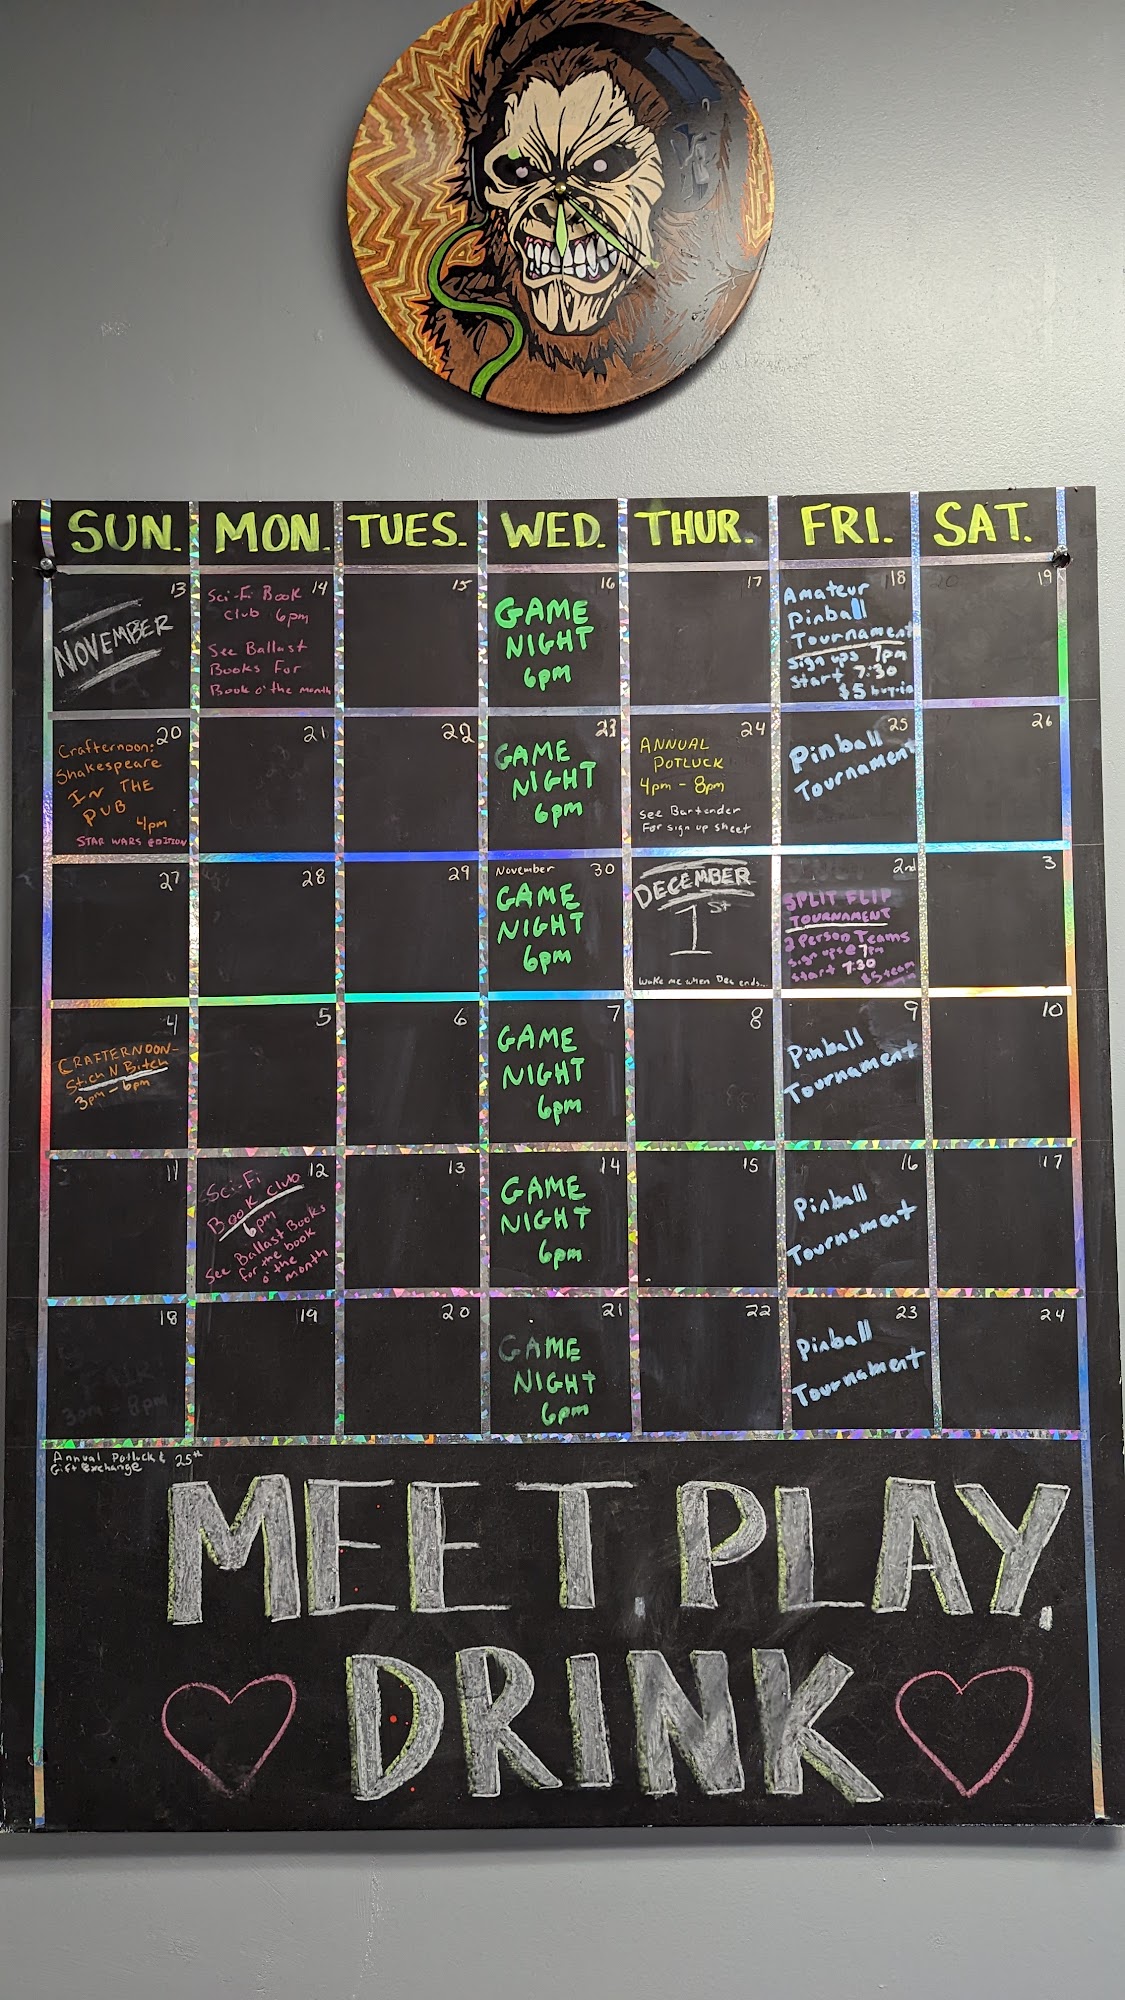 SUN. MON. TUES. WED. THUR. FRI. SAT.
13
NOVEMBER
14
Sci-Fi Book
Club 6pm
See Ballast
Books For
Book o' the month
15
16
GAME
NIGHT
6pm
17
18
Amateur
Pinball
Tournament
Sign ups 7pm
Start 7:30
$5 buy-in
19
20
Crafternoon:
Shakespeare
IN THE
PUB
4pm
STAR WARS EDITION
21
22
23
GAME
NIGHT
6pm
24
ANNUAL
POTLUCK
4pm - 8pm
See Bartender
For sign up sheet
25
Pinball
Tournament
26
27
28
29
November 30
GAME
NIGHT
6pm
DECEMBER
1st
Wake me when Dec ends...
2nd
SPLIT FLIP
TOURNAMENT
2 Person Teams
sign ups @ 7pm
start 7:30
$5 team
3
4
CRAFTERNOON-
Stich N Bitch
3pm - 6pm
5
6
7
GAME
NIGHT
6pm
8
9
Pinball
Tournament
10
11
12
Sci-Fi
Book Club
6pm
See Ballast Books
for the book
o' the
month
13
14
GAME
NIGHT
6pm
15
16
Pinball
Tournament
17
18
FAIR
8pm
19
20
21
GAME
NIGHT
6pm
22
23
Pinball
Tournament
24
Annual Potluck & 25th
Gift Exchange
MEET, PLAY,
DRINK